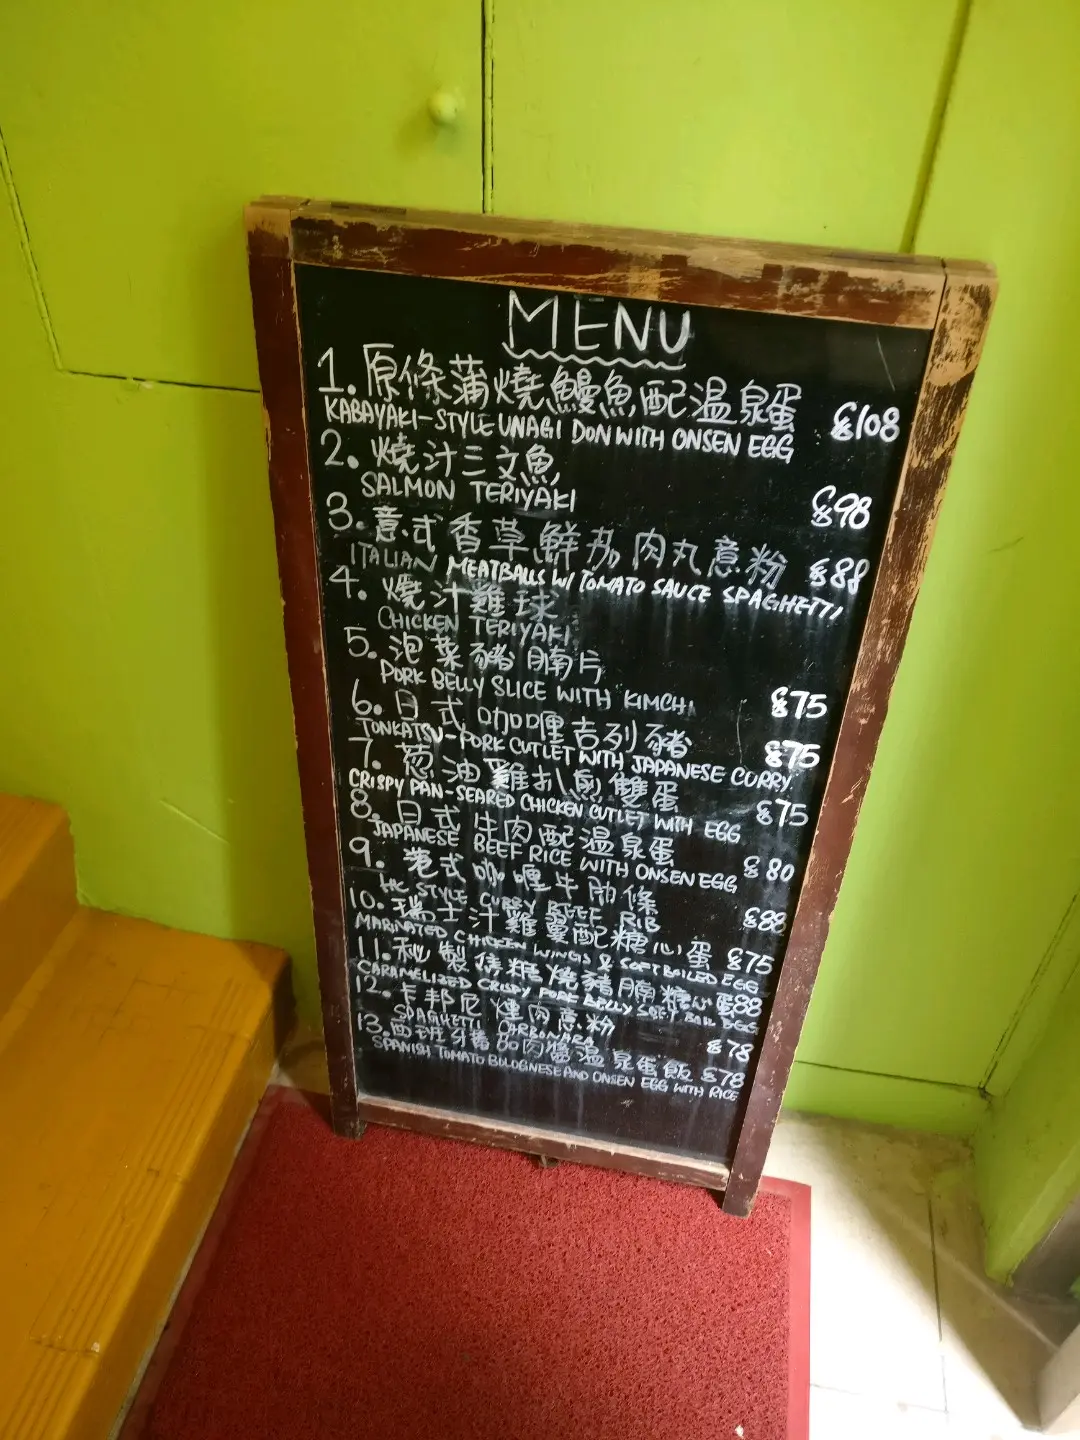 MENU
1. 原條蒲燒鰻魚配溫泉蛋 $108
KABAYAKI-STYLE UNAGI DON WITH ONSEN EGG
2. 燒汁三文魚
SALMON TERIYAKI $98
3. 意式香草鮮茄肉丸意粉 $88
ITALIAN MEATBALLS W/ TOMATO SAUCE SPAGHETTI
4. 燒汁雞球
CHICKEN TERIYAKI
5. 泡菜豬腩片 $75
PORK BELLY SLICE WITH KIMCHI
6. 日式咖喱吉列豬 $75
TONKATSU-PORK CUTLET WITH JAPANESE CURRY
7. 葱油雞扒煎雙蛋 $75
CRISPY PAN-SEARED CHICKEN CUTLET WITH EGG
8. 日式牛肉配溫泉蛋 $80
JAPANESE BEEF RICE WITH ONSEN EGG
9. 港式咖喱牛肋條 $88
HK STYLE CURRY BEEF RIB
10. 瑞士汁雞翼配糖心蛋 $75
MARINATED CHICKEN WINGS & SOFT BOILED EGG
11. 秘製焦糖燒豬腩糖心蛋 $88
CARAMELIZED CRISPY PORK BELLY SOFT BOIL EGG
12. 卡邦尼煙肉意粉 $78
SPAGHETTI CARBONARA
13. 西班牙蕃茄肉醬溫泉蛋飯 $78
SPANISH TOMATO BOLOGNESE AND ONSEN EGG WITH RICE